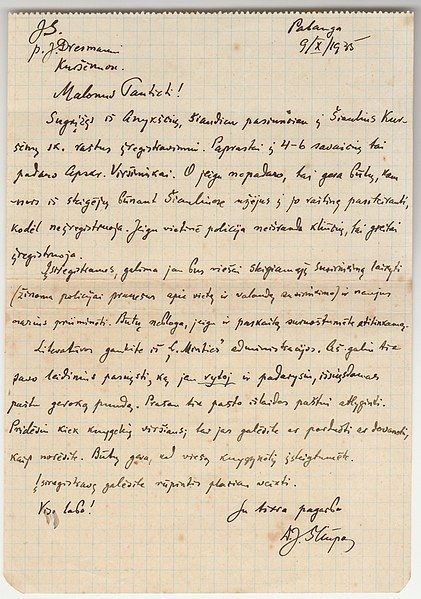 J. S.
p. J. Dresmann
Kuršėnuose.
Palanga
9/X/1935
Malonus Tamstai!
Sugrįžęs iš Anykščių, šiandien pasiunčiau į Šiaulius Kur-
šėnų sk. raštus įregistravimui. Paprastai į 4-6 savaites tai
padaro Apskr. Viršininkai. O jeigu nepadaro, tai gera būtų, kam
nors iš steigėjų būnant Šiauliuose užėjus į jo raštinę pasiteirauti,
kodėl neįregistruoja. Jeigu vietinė policija neišranda kliūčių, tai greitai
įregistruoja.
Įsiregistravus, galima jau bus viešai steigiamąjį susirinkimą laikyti
(žinoma policijai pranešus apie vietą ir valandą susirinkimo) ir naujus
narius priiminėti. Būtų neblogai, jeigu ir paskaitą surengtumėte atitinkamą.
Literatūros gausite iš "L. Minties" administracijos. Aš galiu tik
savo leidinius pasiųsti, ką jau rytoj ir padarysiu, išsiųsdamas
paštu geroką pundą. Prašau tik pašto išlaidas paštui atlyginti.
Pridėsiu kiek knygelių viršiaus, tai jas galėsite ar parduoti ar dovanoti,
kaip norėsite. Būtų gera, kad viešą knygynėlį įsteigtumėte.
Įsiregistravę galėsite rūpintis plačiau veikti.
Viso labo!
Su tikra pagarba
J. Šliūpas